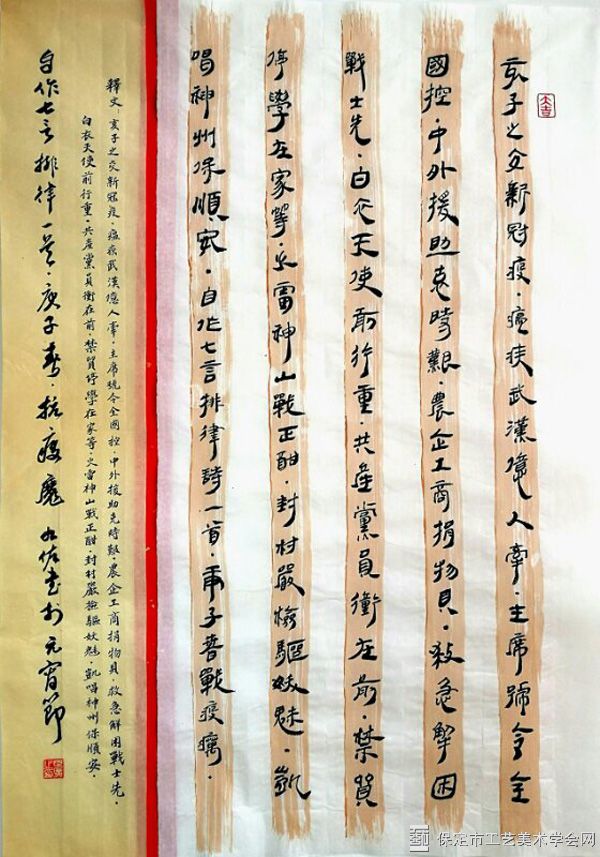 大吉
亥子之交新冠疫·瘟疾武漢億人牽·主席號令全
國控·中外援助克時艱·農企工商捐物貝·救急解困
戰士先·白衣天使前行重·共產黨員衝在前·禁貿
停學在家等·火雷神山戰正酣·封村嚴檢驅妖魅·凱
唱神州保順安·自作七言排律詩一首·庚子春戰疫癘·
釋文:亥子之交新冠疫·瘟疾武漢億人牽·主席號令全國控·中外援助克時艱·農企工商捐物貝·救急解困戰士先·
白衣天使前行重·共產黨員衝在前·禁貿停學在家等·火雷神山戰正酣·封村嚴檢驅妖魅·凱唱神州保順安·
自作七言排律一首·庚子春·抗疫魔 書於元宵節
保定市工艺美术学会网